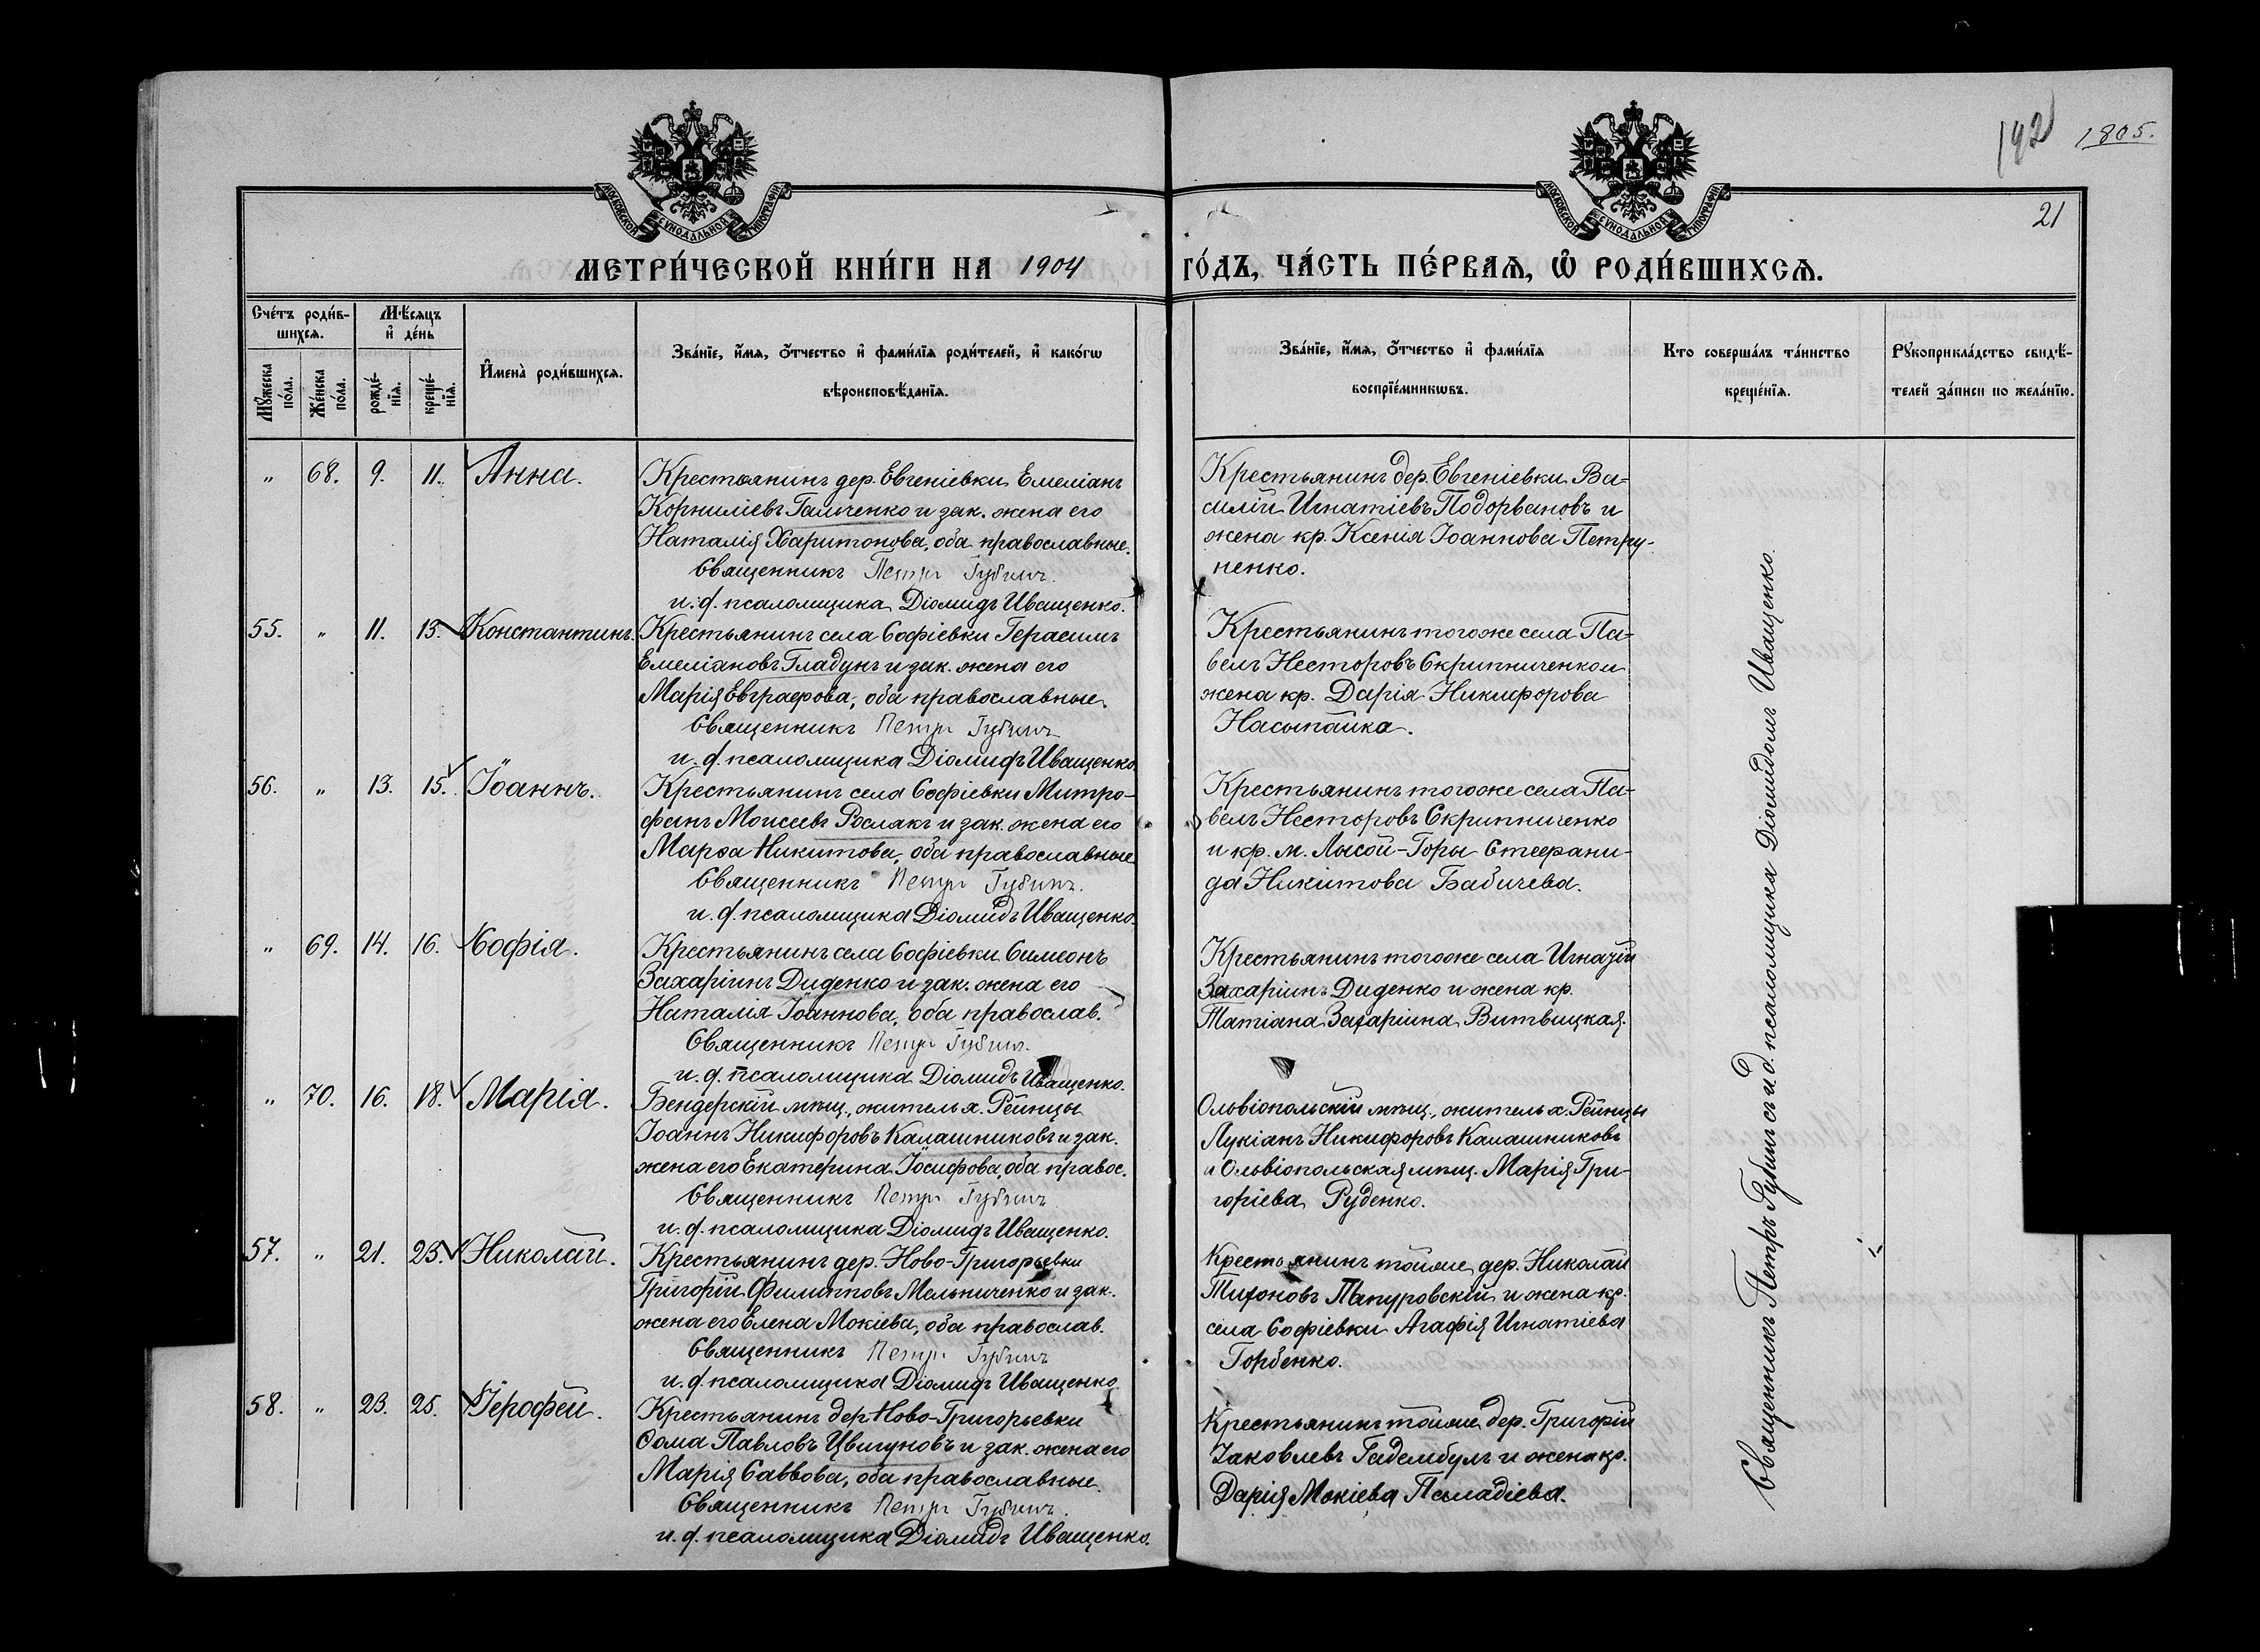 192
1805.
МОСКОВСКОЙ СУНОДАЛЬНОЙ ТИПОГРАФІИ
МОСКОВСКОЙ СУНОДАЛЬНОЙ ТИПОГРАФІИ
21
МЕТРИ́ЧЕСКОЙ КНИ́ГИ НА 1904 ГО́ДЪ, ЧА́СТЬ ПЕ́РВАѦ, Ѡ РОДИ́ВШИХСѦ.
Сче́тъ роди́в-
шихсѧ.
Мѣ́сѧцъ
и де́нь
Мꙋ́жеска
по́ла.
Же́нска
по́ла.
рожде́-
нїѧ.
креще́-
нїѧ.
Имена̀ роди́вшихсѧ.
Зва́нїе, и́мѧ, ѻ́тчество и фами́лїѧ роди́телей, и како́гѡ
вѣроисповѣ́данїѧ.
Зва́нїе, и́мѧ, ѻ́тчество и фами́лїѧ
воспрїе́мникѡвъ.
Кто соверша́лъ та́инство
креще́нїѧ.
Рꙋкоприкла́дство свидѣ́-
телей за́писи по жела́нїю.
„ 68. 9. 11. Анна.
Крестьянинъ дер. Евгеніевки Емеліанъ
Корниліевъ Гальченко и зак. жена его
Наталія Харитонова, оба православные.
Священникъ Петръ Губинъ.
и. д. псаломщика Діомидъ Иващенко.
Крестьянинъ дер. Евгеніевки Ва-
силій Игнатіевъ Подорвановъ и
жена кр. Ксенія Іоаннова Петру-
ненко.
55. „ 11. 13. Константинъ.
Крестьянинъ села Софіевки Герасимъ
Емеліановъ Гладунъ и зак. жена его
Марія Евграфова, оба православные.
Священникъ Петръ Губинъ
и. д. псаломщика Діомидъ Иващенко.
Крестьянинъ тогоже села Па-
велъ Несторовъ Скрипниченко и
жена кр. Дарія Никифорова
Насыпайка.
56. „ 13. 15. Іоаннъ.
Крестьянинъ села Софіевки Митро-
фанъ Моисеевъ Рослякъ и зак. жена его
Марѳа Никитова, оба православные
Священникъ Петръ Губинъ.
и. д. псаломщика Діомидъ Иващенко.
Крестьянинъ тогоже села Па-
велъ Несторовъ Скрипниченко
и кр. м. Лысой-Горы Стефани-
да Никитова Бабичева.
„ 69. 14. 16. Софія.
Крестьянинъ села Софіевки Симеонъ
Захаріинъ Диденко и зак. жена его
Наталія Іоаннова, оба православ.
Священникъ Петръ Губинъ.
и. д. псаломщика Діомидъ Иващенко.
Крестьянинъ тогоже села Игнатій
Захаріинъ Диденко и жена кр.
Татіана Захаріина Витвицкая.
„ 70. 16. 18. Марія.
Бендерскій мѣщ., житель х. Рейнцы
Іоаннъ Никифоровъ Калашниковъ и зак.
жена его Екатерина Іосифова, оба правос.
Священникъ Петръ Губинъ
и. д. псаломщика Діомидъ Иващенко.
Ольвіопольскій мѣщ., житель х. Рейнцы
Лукіанъ Никифоровъ Калашниковъ
и Ольвіопольская мѣщ. Марія Гри-
горіева Руденко.
57. „ 21. 23. Николай.
Крестьянинъ дер. Ново-Григорьевки
Григорій Филипповъ Мельниченко и зак.
жена его Елена Мокіева, оба православ.
Священникъ Петръ Губинъ
и. д. псаломщика Діомидъ Иващенко.
Крестьянинъ тойже дер. Николай
Тихоновъ Папуровскій и жена кр.
села Софіевки Агафія Игнатіева
Горбенко.
58. „ 23. 25. Іерофей.
Крестьянинъ дер. Ново-Григорьевки
Ѳома Павловъ Цвигуновъ и зак. жена его
Марія Саввова, оба православные.
Священникъ Петръ Губинъ.
и. д. псаломщика Діомидъ Иващенко.
Крестьянинъ тойже дер. Григорій
Іаковлевъ Гадембулъ и жена кр.
Дарія Мокіева Паладіева.
Священникъ Петръ Губинъ съ и. д. псаломщика Діомидомъ Иващенко.